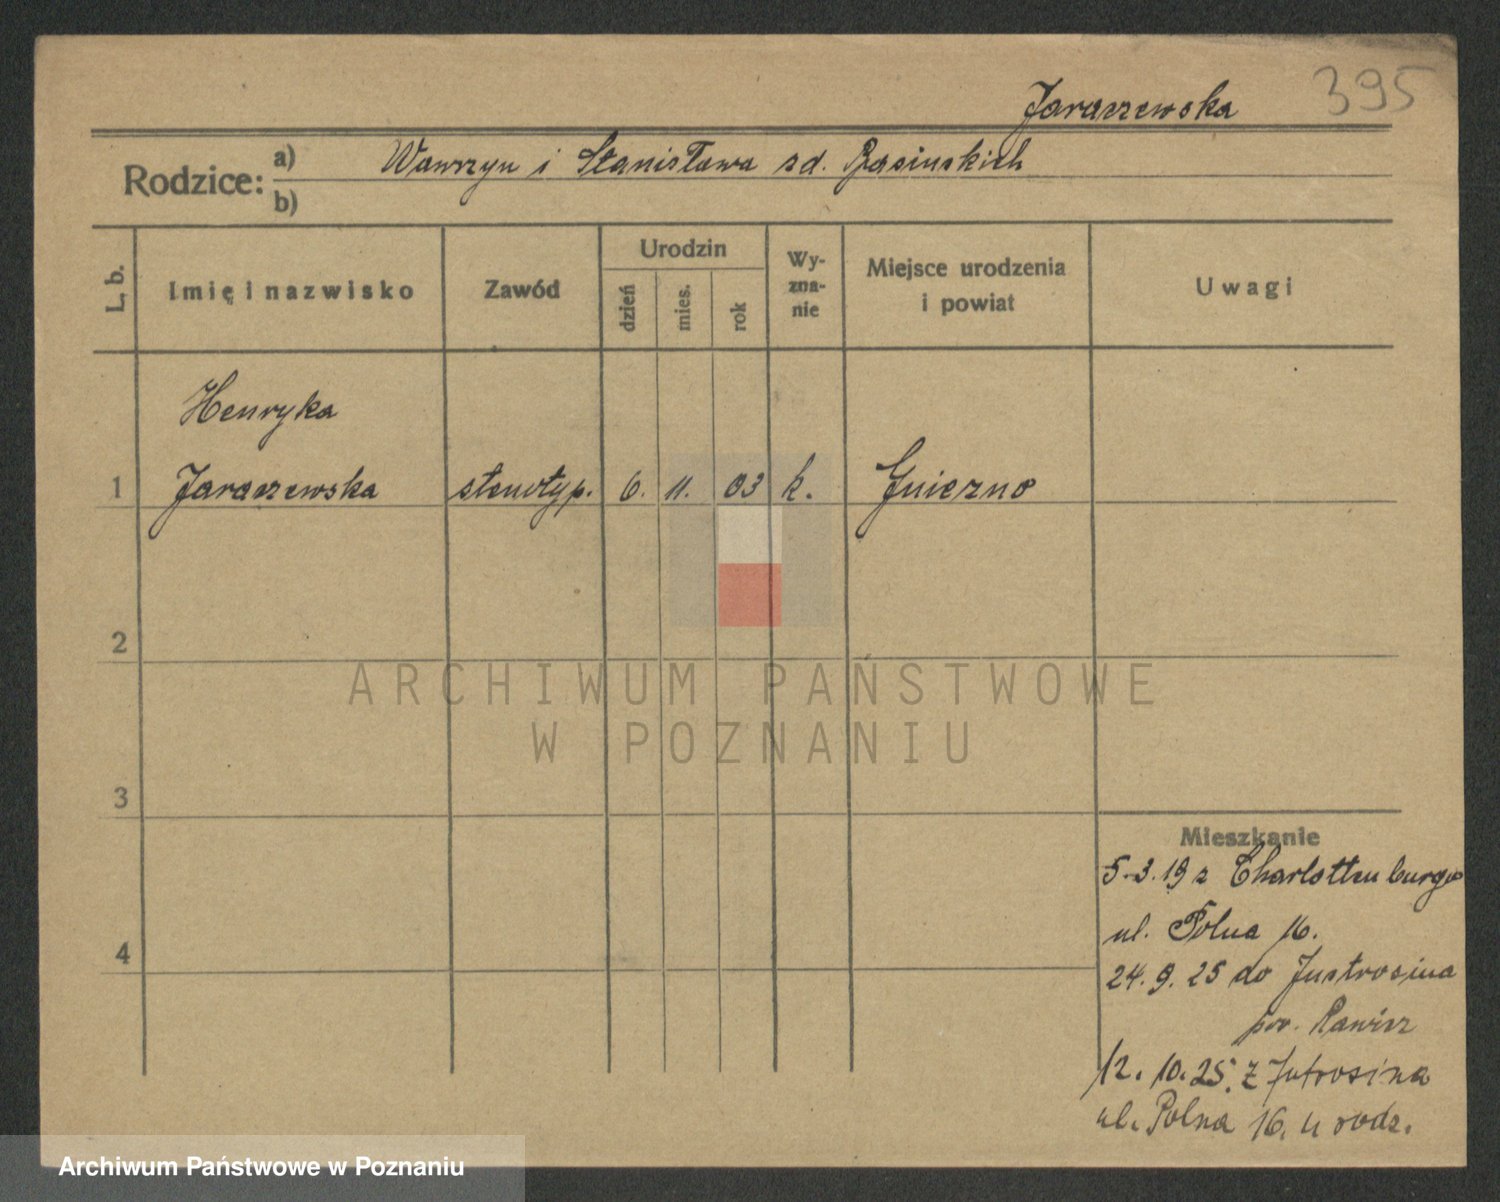 395
Jaraszewska
Rodzice: a) Wawrzyn i Stanisława zd.
b)
L. b.
Imię i nazwisko
Zawód
Urodzin
dzień
mies.
rok
Wy-
zna-
nie
Miejsce urodzenia
i powiat
Uwagi
Henryka
1 Jaraszewska stenotyp. 6. 11. 03 k. Gniezno
2
ARCHIWUM PAŃSTWOWE
W POZNANIU
3
Mieszkanie
5.3.19 z Charlottenburga
ul. Polna 16.
4
24.9.25 do Jutrosina
pow. Rawicz
12.10.25. z Jutrosina
ul. Polna 16. u rodz.
Archiwum Państwowe w Poznaniu